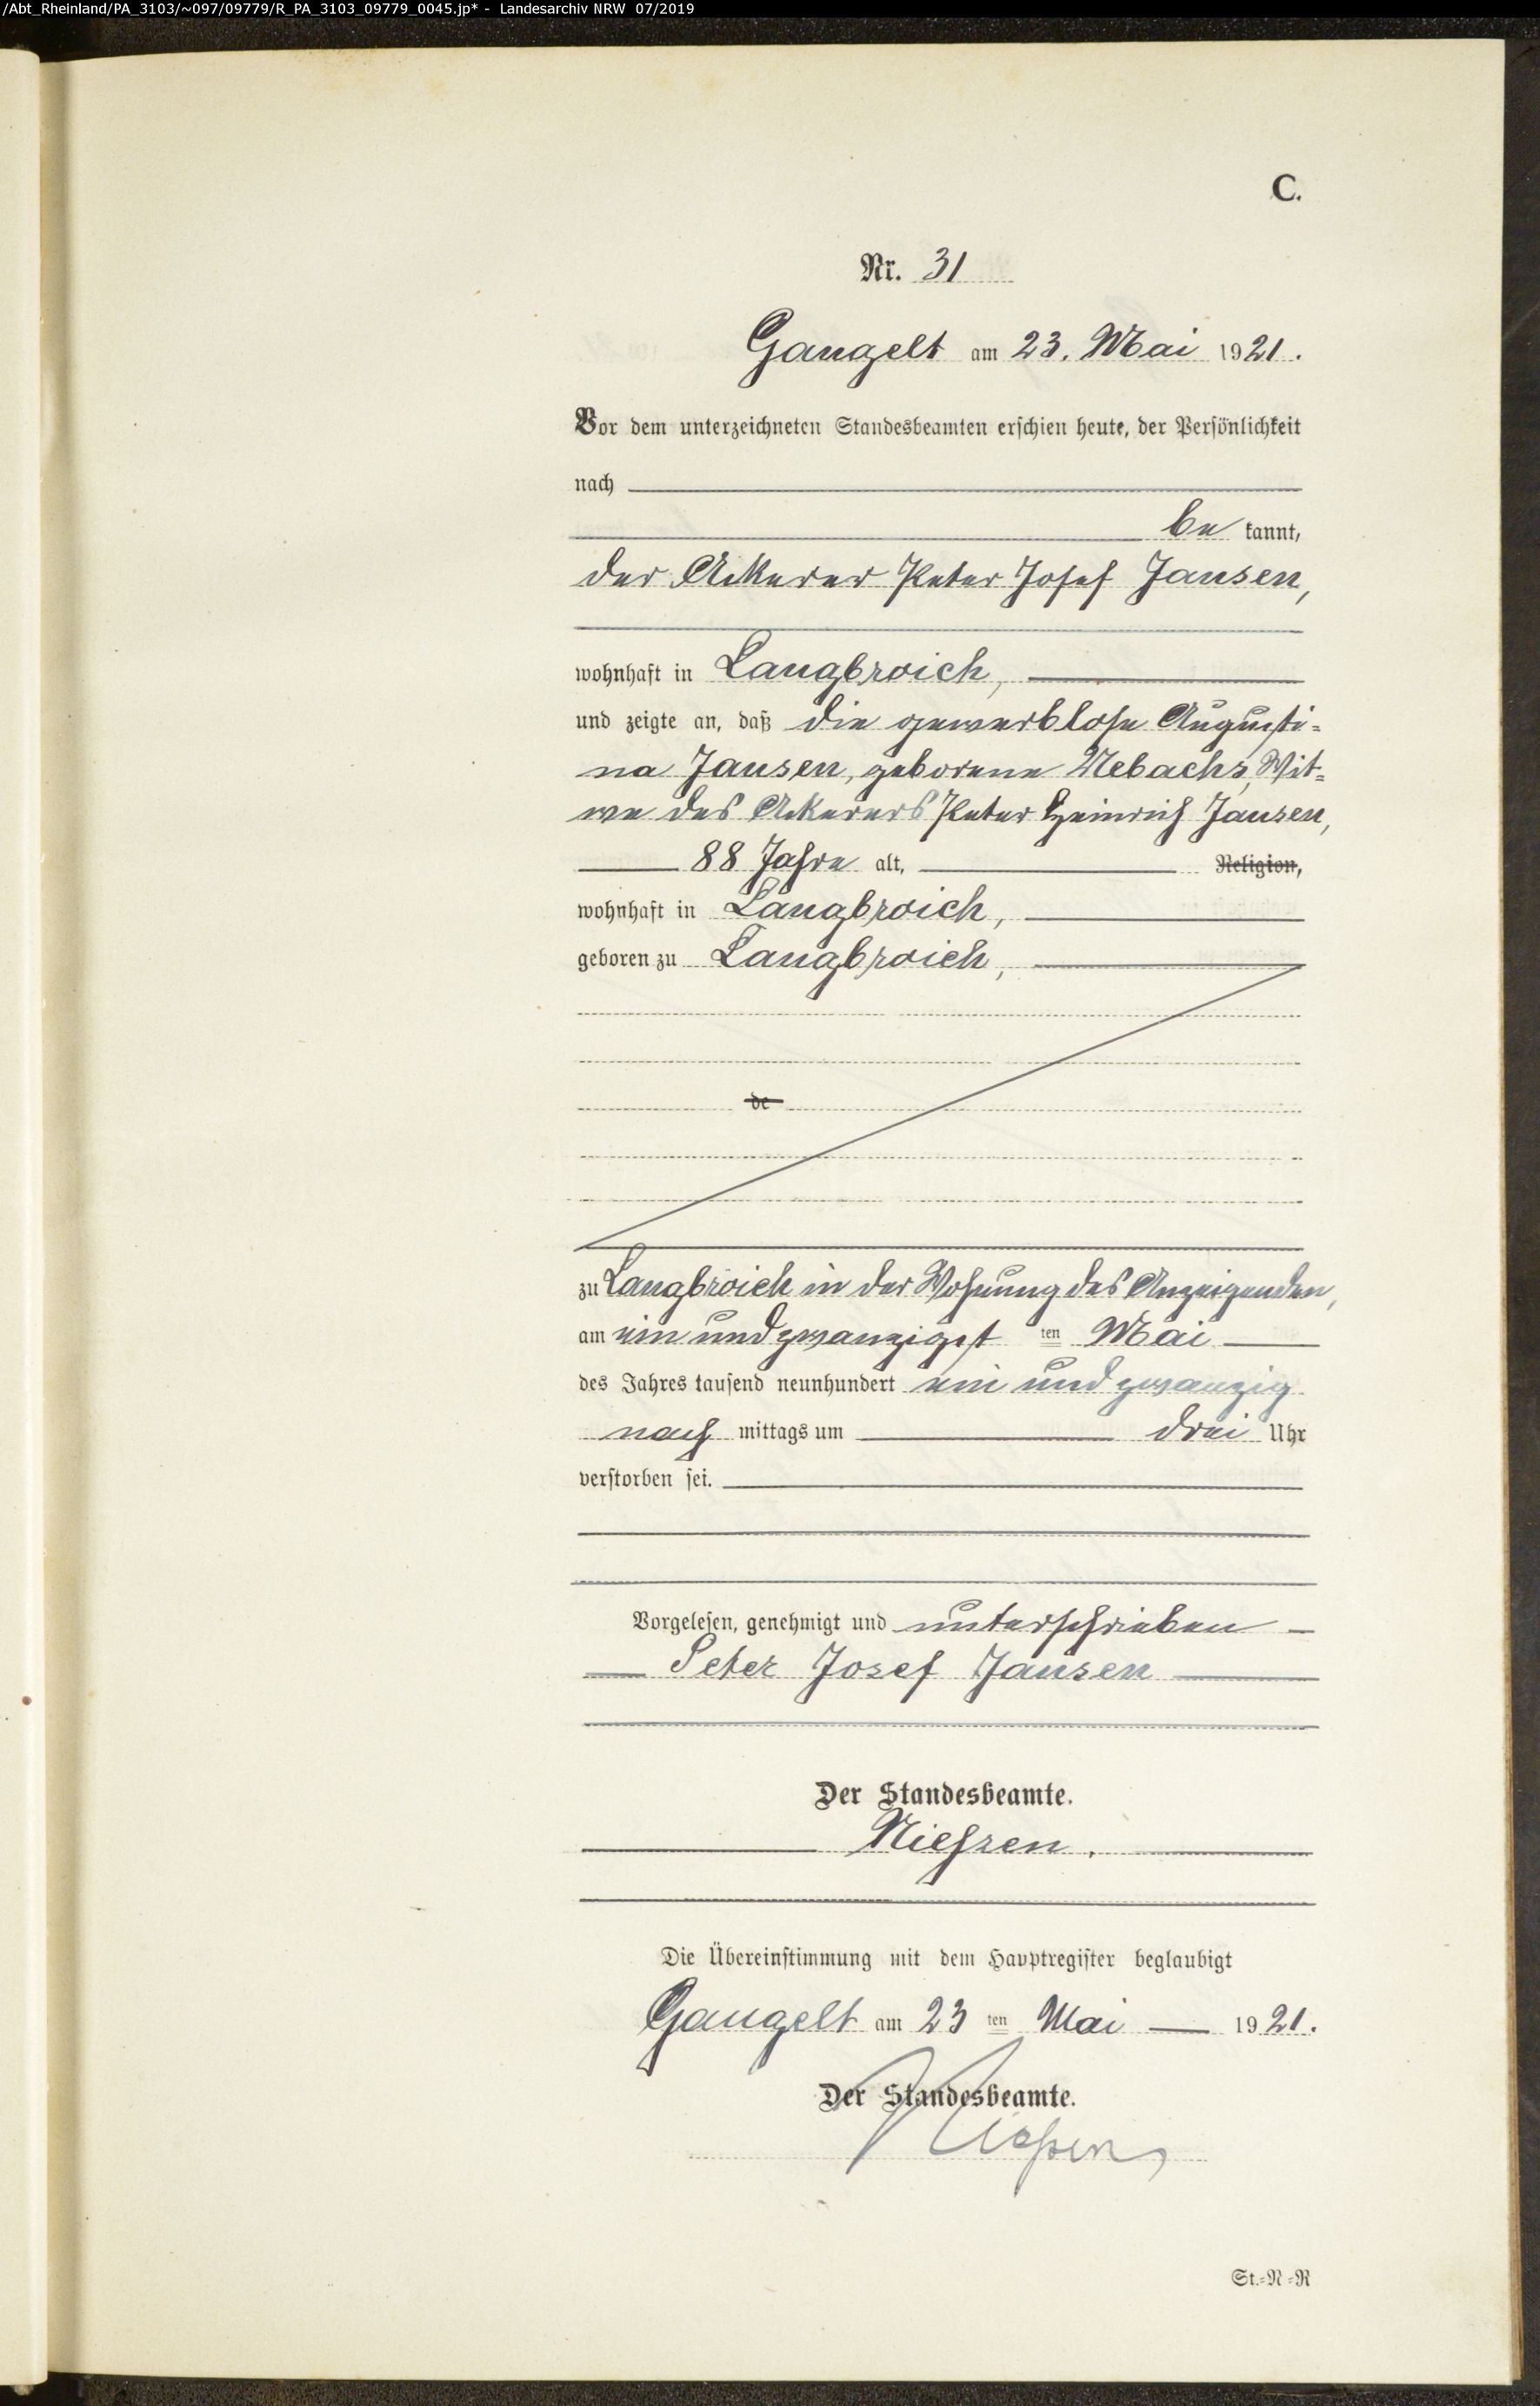 /Abt_Rheinland/PA_3103/~097/09779/R_PA_3103_09779_0045.jp* - Landesarchiv NRW 07/2019
C.
Nr. 31
Gangelt am 23. Mai 1921.
Vor dem unterzeichneten Standesbeamten erschien heute, der Persönlichkeit
nach
be kannt,
der Ackerer Peter Josef Jansen,
wohnhaft in Langbroich,
und zeigte an, daß die gewerblose Augusti-
na Jansen, geborene Mebachs, Wit-
we des Ackerers Peter Heinrich Jansen,
88 Jahre alt, Religion,
wohnhaft in Langbroich,
geboren zu Langbroich,
de
zu Langbroich in der Wohnung des Anzeigenden,
am ein und zwanzigst ten Mai
des Jahres tausend neunhundert ein und zwanzig
nach mittags um drei Uhr
verstorben sei.
Vorgelesen, genehmigt und unterschrieben
Peter Josef Jansen
Der Standesbeamte.
Nießen.
Die Übereinstimmung mit dem Hauptregister beglaubigt
Gangelt am 23 ten Mai 1921.
Der Standesbeamte.
Nießen
St.-N-R